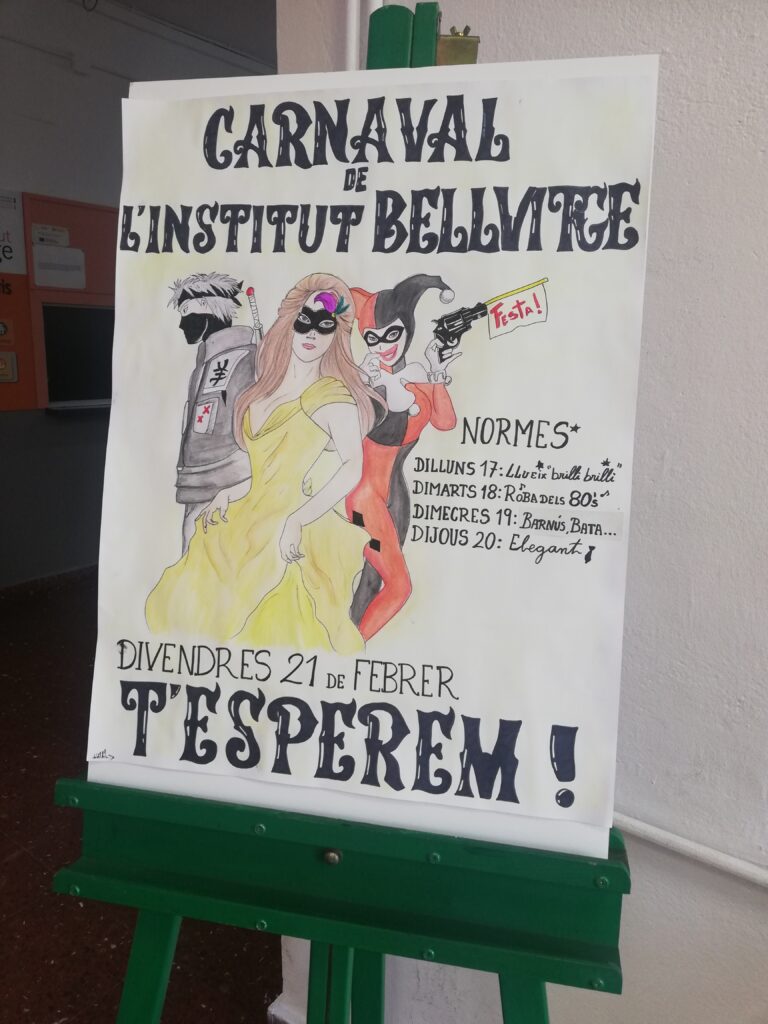 CARNAVAL
DE
L'INSTITUT BELLVITGE
FESTA!
NORMES*
DILLUNS 17: LLueix "brilli brilli"
DIMARTS 18: ROBA DELS 80's
DIMECRES 19: BARNÚS, BATA...
DIJOUS 20: Elegant
DIVENDRES 21 DE FEBRER
T'ESPEREM!